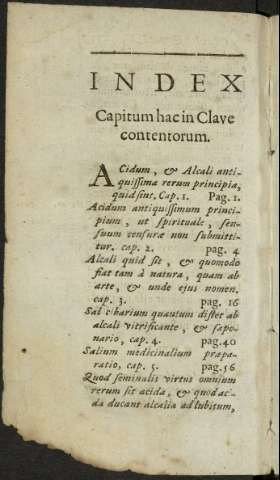 INDEX
Capitum hac in Clave
contentorum.
ACidum, & Alcali anti-
quissima rerum principia,
quid sint. Cap. 1. Pag. 1.
Acidum antiquissimum princi-
pium, ut spirituale, sen-
suum censuræ non submitti-
tur. cap. 2. pag. 4
Alcali quid sit, & quomodo
fiat tam à natura, quam ab
arte, & unde ejus nomen.
cap. 3. pag. 16
Sal cibarium quantum distet ab
alcali vitrificante, & sapo-
nario, cap. 4. pag. 40
Salium medicinalium præpa-
ratio, cap. 5. pag. 56
Quod seminalis virtus omnium
rerum sit acida, & quod aci-
da ducant alcalia ad lubitum,